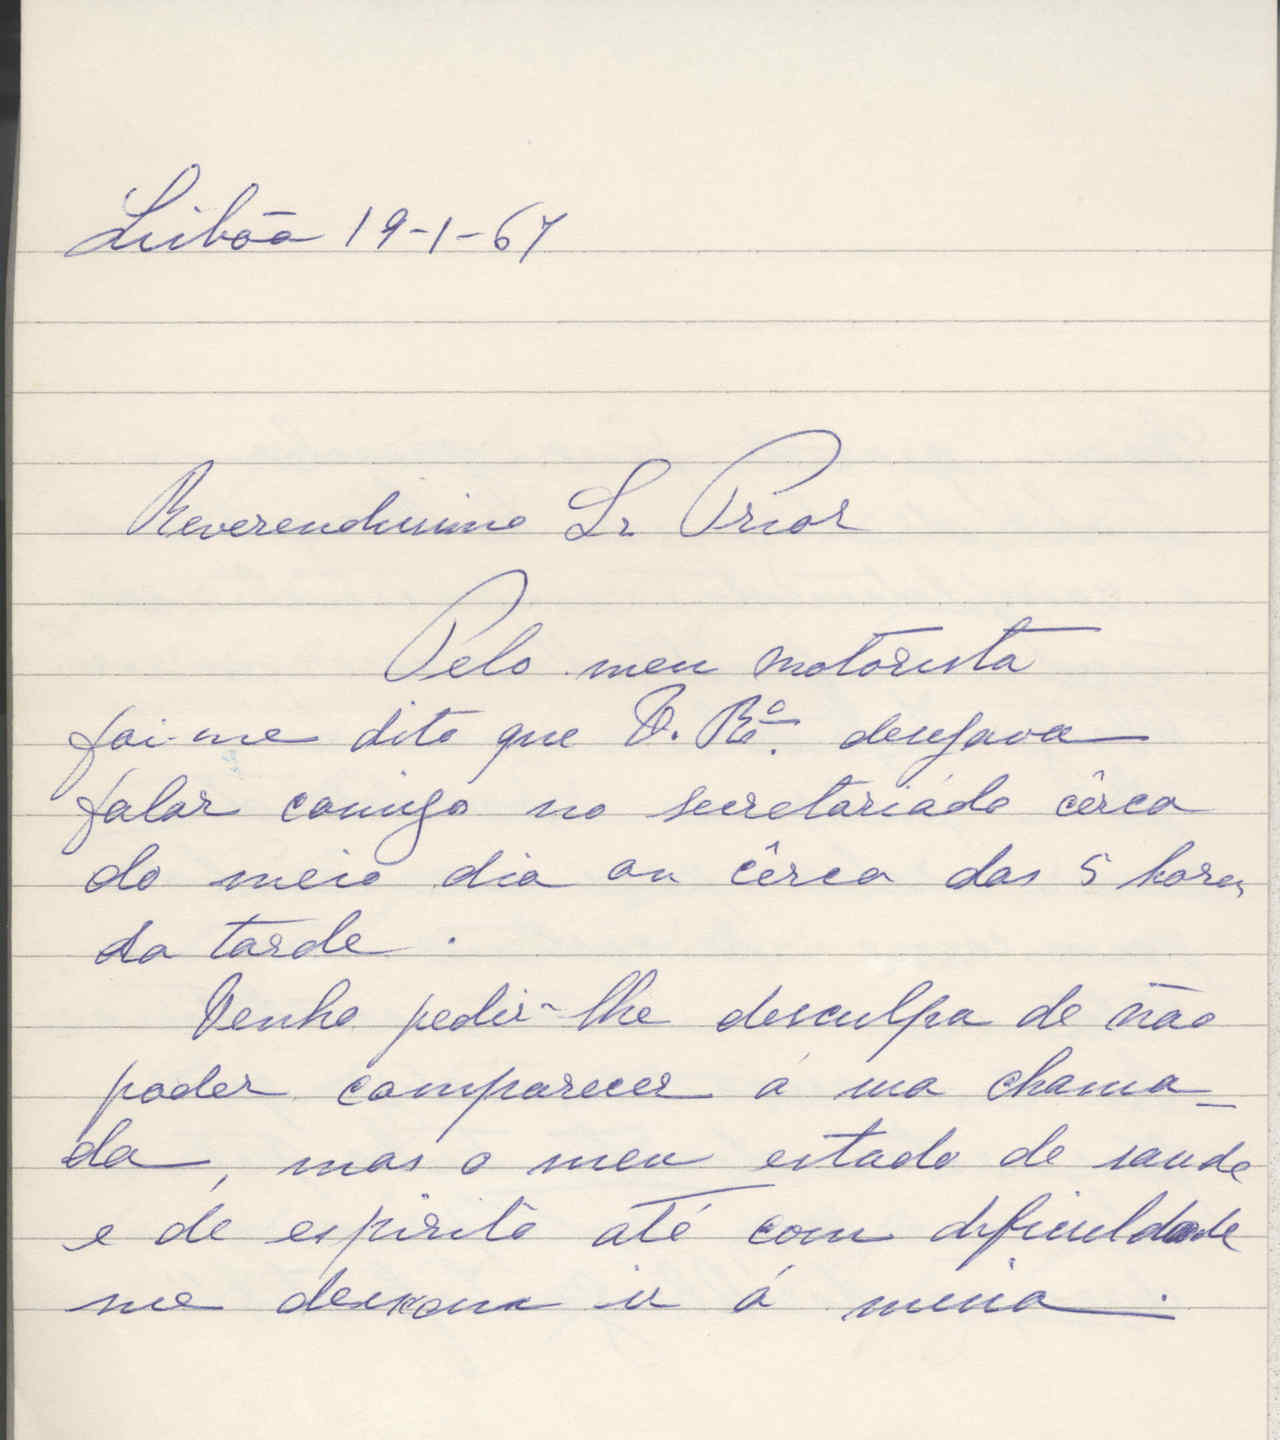 Lisbôa 19-1-67
Reverendissimo Sr. Prior
Pelo meu motorista
foi-me dito que V. Rº. desejava
falar comigo no secretariádo cêrca
do meio dia ou cêrca das 5 horas
da tarde.
Venho pedir-lhe desculpa de não
poder comparecer á sua chama_
da, mas o meu estado de saude
e de espirito até com dificuldade
me deixam ir á missa.